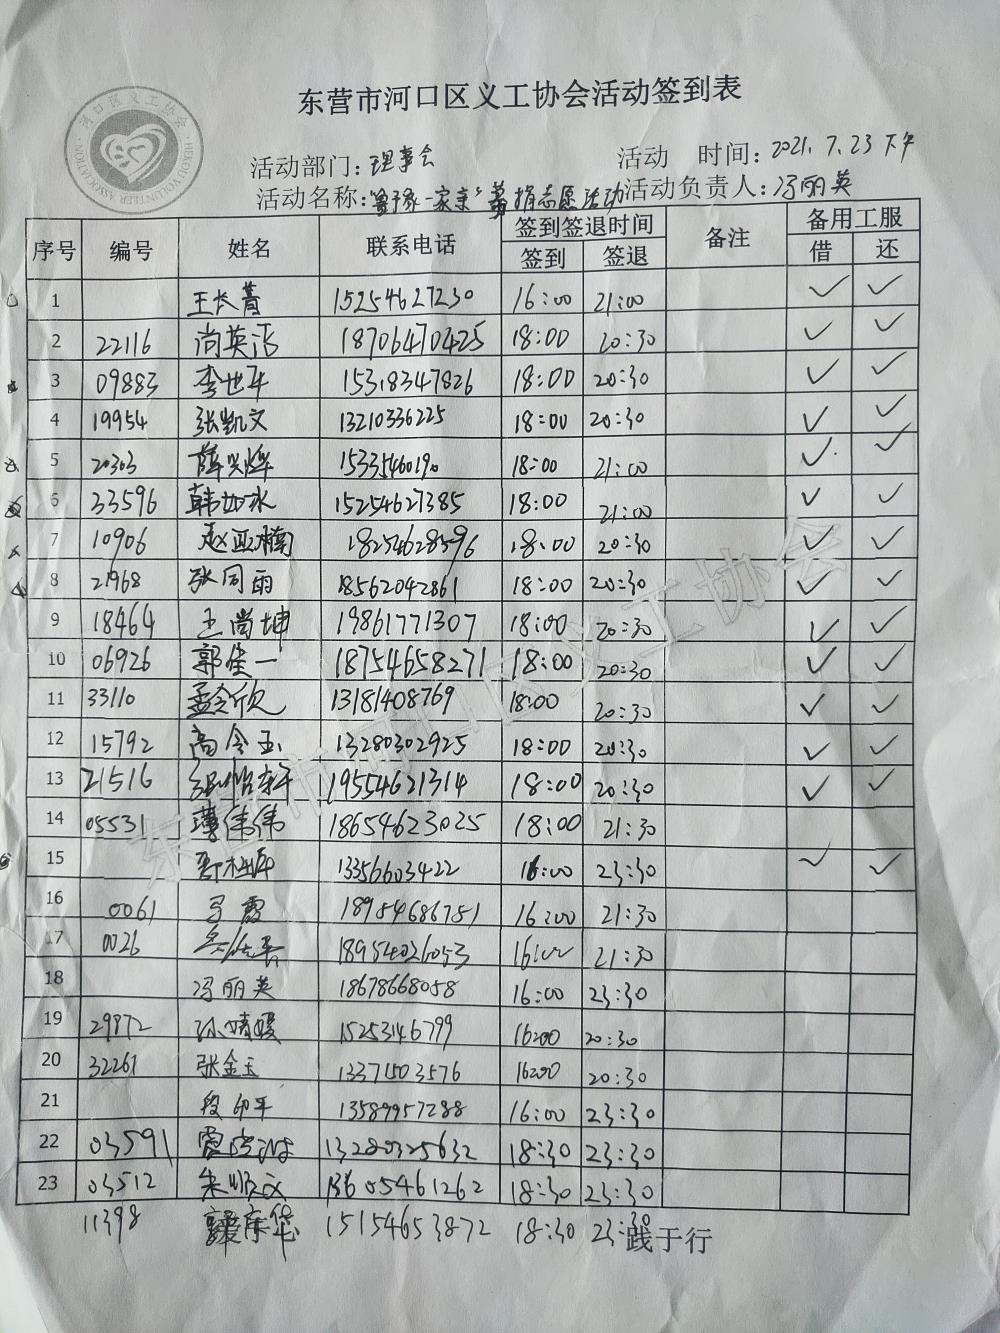 东营市河口区义工协会活动签到表
河口区义工协会
HEKOU VOLUNTEER ASSOCIATION
活动部门：理事会 活动 时间：2021.7.23下午
活动名称："鲁豫一家亲"募捐志愿活动 活动负责人：冯丽英
序号 编号 姓名 联系电话 签到签退时间 备注 备用工服
签到 签退 借 还
1 王长菁 15254627230 16:00 21:00 ✓ ✓
2 22116 尚英 18706470425 18:00 20:30 ✓ ✓
3 09883 李世 15318347826 18:00 20:30 ✓ ✓
4 19954 张凯文 13210336225 18:00 20:30 ✓ ✓
5 20303 薛兴烨 1533546019 18:00 21:00 ✓ ✓
6 33596 韩如冰 15254627385 18:00 21:00 ✓ ✓
7 10906 赵亚楠 18254628596 18:00 20:30 ✓ ✓
8 21968 张同雨 18562042861 18:00 20:30 ✓ ✓
9 18464 王尚坤 19861771307 18:00 20:30 ✓ ✓
10 06926 郭佳一 18754658271 18:00 20:30 ✓ ✓
11 33110 孟令欣 13181408769 18:00 20:30 ✓ ✓
12 15792 高令玉 13280302925 18:00 20:30 ✓ ✓
13 21516 19554621314 18:00 20:30 ✓ ✓
14 05531 薄伟伟 18654623025 18:00 21:30
15 13356603422 16:00 23:30 ✓ ✓
16 0061 马霞 18954686751 16:00 21:30
17 0026 18954026053 16:00 21:30
18 冯丽英 18678668058 16:00 23:30
19 29872 孙靖媛 15253146799 16:00 20:30
20 32261 张金玉 13371503576 16:00 20:30
21 段 平 13589957288 16:00 23:30
22 03591 13280325632 18:30 23:30
23 03512 朱顺文 13605461262 18:30 23:30
11398 东华 15154653872 18:30 23:30
践于行
东营市河口区义工协会